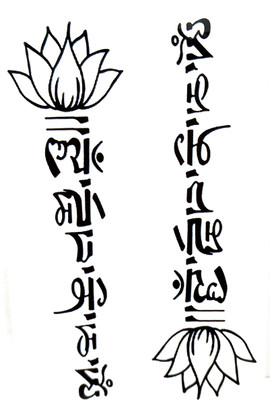 ཨོཾ་མ་ཎི་པ་དྨེ་ཧཱུྃ།།
ཨོཾ་མ་ཎི་པ་དྨེ་ཧཱུྃ།།